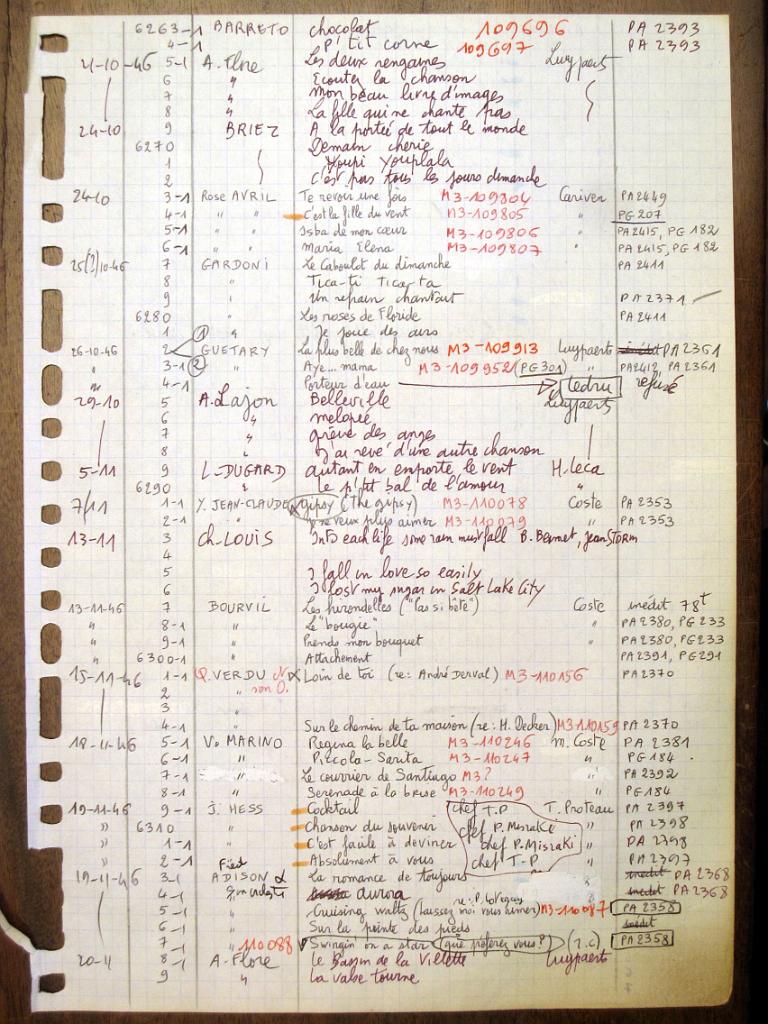 6263-1 BARRETO chocolat 109696 PA 2393
4-1 P'tit corne 109697 PA 2393
21-10-46 5-1 A. Flore Les deux rengaines Luypaerts
6 " Ecoutez la chanson
7 " Mon beau livre d'images
8 " La fille qui ne chante pas
24-10 9 BRIEZ A la portée de tout le monde
6270 Demain cherie
1 Youpi Youplala
2 C'est pas tous les jours dimanche
24-10 3-1 Rose AVRIL Te revoir une fois M3-109804 Cariven PA 2449
4-1 " " C'est la fille du vent M3-109805 " PG 207
5-1 " " Isba de mon cœur M3-109806 PA 2415, PG 182
6-1 " " Maria Elena M3-109807 " PA 2415, PG 182
25(?)10-46 7 GARDONI Le Caboulot du dimanche PA 2411
8 " Tica-ti Tica-ta
9 " Un refrain chantait PA 2371
6280 " Les roses de Floride PA 2411
1 " Je joue des airs
26-10-46 2 1 GUETARY La plus belle de chez nous M3-109913 Luypaerts PA 2361
" 3-1 2 " Aye... mama M3-109952 (PG 301) " PA 2412, PA 2361
" 4-1 Porteur d'eau Ledru refusé
29-10 5 A. Lajon Belleville Luypaerts
6 " melopée
7 " grève des anges
8 " J'ai revé d'une autre chanson
5-11 9 L-DUGARD autant en emporte le vent H. Leca
6290 " Le p'tit bal de l'amour "
7/11 1-1 Y. JEAN-CLAUDE gipsy (The gipsy) M3-110078 Coste PA 2353
2-1 " Je veux plus aimer M3-110079 " PA 2353
13-11 3 Ch. LOUIS Into each life some rain must fall B. Bennet, Jean STORM
4
5 I fall in love so easily
6 I lost my sugar in Salt Lake City
13-11-46 7 BOURVIL Les hirondelles ("Pas si bête") Coste inédit 78t
" 8-1 " Le "bougie" PA 2380, PG 233
" 9-1 " Prends mon bouquet " PA 2380, PG 233
" 6300-1 " Attachement PA 2391, PG 291
15-11-46 1-1 Q. VERDU N Loin de toi (re: André Derval) M3-110156 PA 2370
2 " non O.
3 "
4-1 " Sur le chemin de ta maison (re: H. Decker) M3 110159 PA 2370
18-11-46 5-1 V. MARINO Regina la belle M3-110246 M. Coste PA 2381
6-1 " Piccola-Sarita M3-110247 " PG 184
7-1 " Le courrier de Santiago M3? " PA 2392
8-1 " Serenade à la brise M3-110249 " PG 184
19-11-46 9-1 J. HESS Cocktail chef T.P T. Proteau PA 2397
" 6310 " Chanson du souvenir chef P. Misraki " PA 2398
" 1-1 " C'est facile à deviner chef P. Misraki " PA 2398
" 2-1 " Absolument à vous chef T-P " PA 2397
19-11-46 3-1 Fred ADISON & La romance de toujours inédit PA 2368
4-1 son orchestre aurora inédit PA 2368
5-1 " Cruising waltz (laissez moi vous aimer) M3-110087 PA 2358
6-1 " Sur la pointe des pieds inédit
7-1 110088 " Swingin' on a star (que préférez vous?) (T.C) PA 2358
20-11 8-1 A. Flore Le Bassin de la Villette Luypaerts
9 " La valse tourne